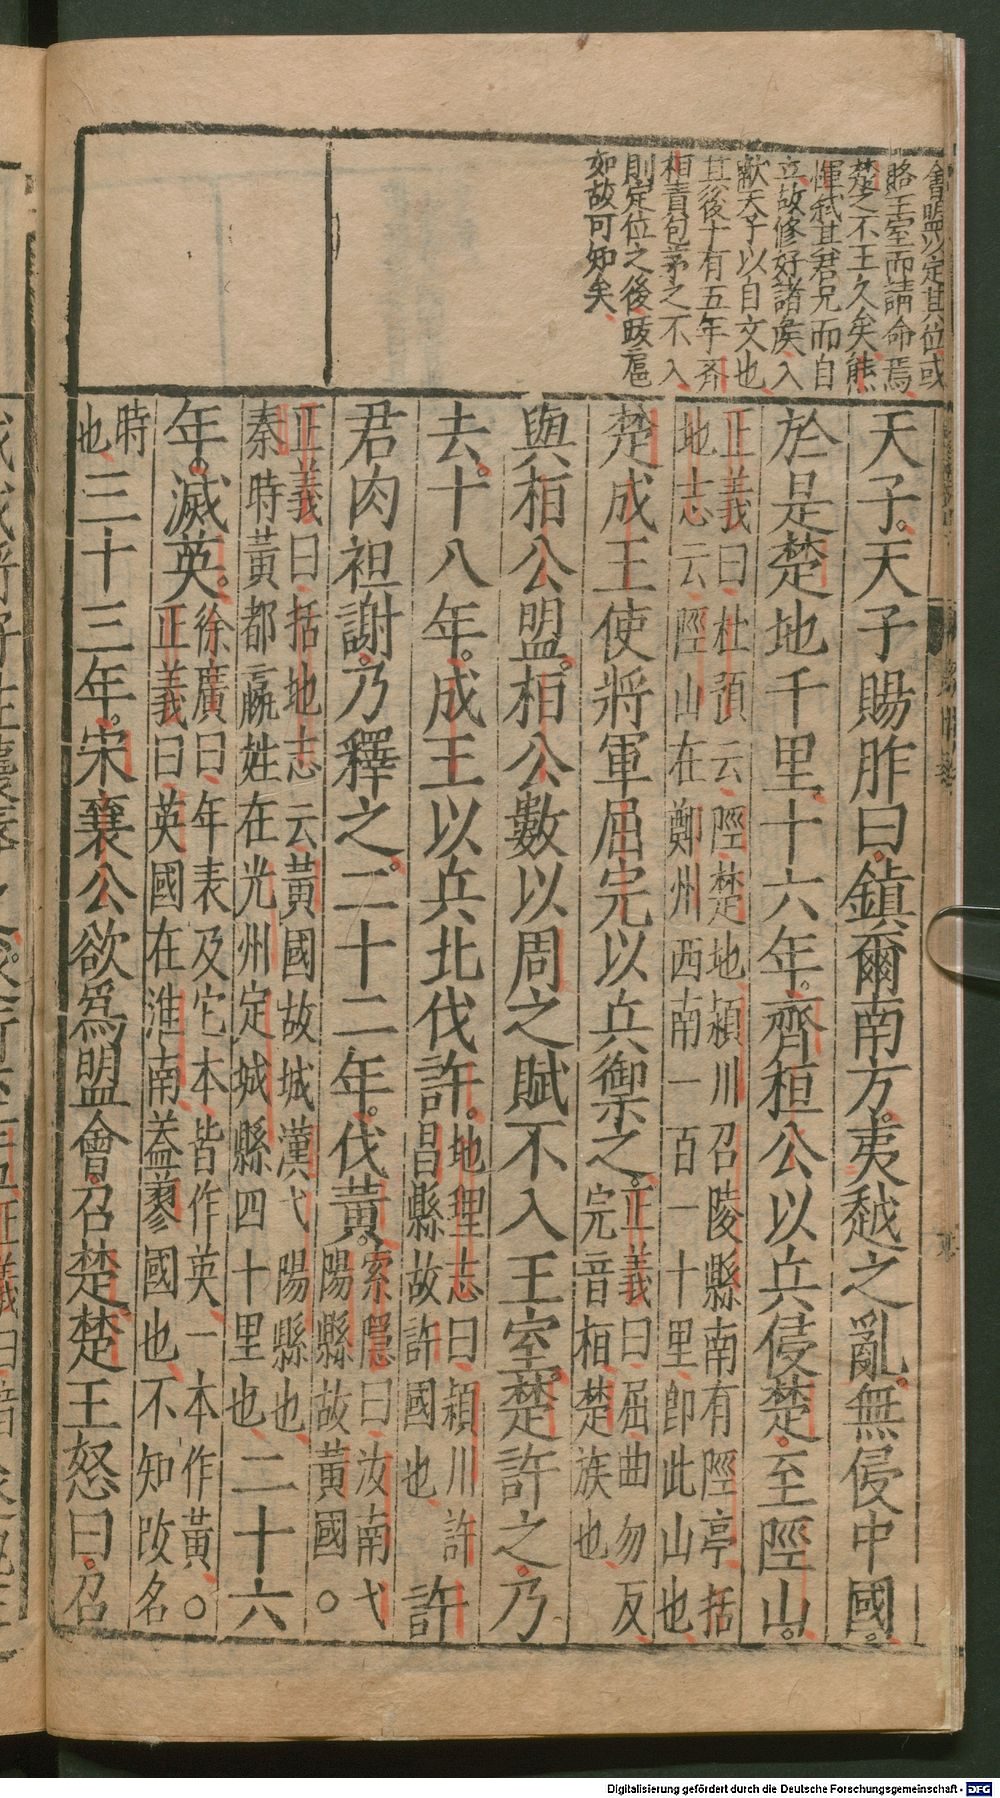 會盟以定其位或
賂王室而請命焉
楚之不王久矣熊
惲弑其君兄而自
立故修好諸矦入
獻天子以自文也
其後十有五年齊
桓責包茅之不入
則定位之後跋扈
如故可知矣
天子。天子賜胙曰。鎮爾南方。夷越之亂。無侵中國。
於是楚地千里、十六年。齊桓公以兵侵楚。至陘山。
正義曰杜預云陘楚地潁川召陵縣南有陘亭括
地志云陘山在鄭州西南一百一十里卽此山也
楚成王使將軍屈完以兵禦之。正義曰屈曲勿反
完音桓楚族也
與桓公盟。桓公數以周之賦不入王室。楚許之。乃
去。十八年。成王以兵北伐許。地理志曰潁川許
昌縣故許國也
許
君肉袒謝。乃釋之。二十二年。伐黃。索隱曰汝南弋
陽縣故黃國○
正義曰括地志云黃國故城漢弋陽縣也
秦時黃都嬴姓在光州定城縣四十里也
二十六
年。滅英。徐廣曰年表及它本皆作英一本作黃○
正義曰英國在淮南蓋蓼國也不知改名
時
也
三十三年。宋襄公欲爲盟會召楚楚王怒曰。召
Digitalisierung gefördert durch die Deutsche Forschungsgemeinschaft - DFG